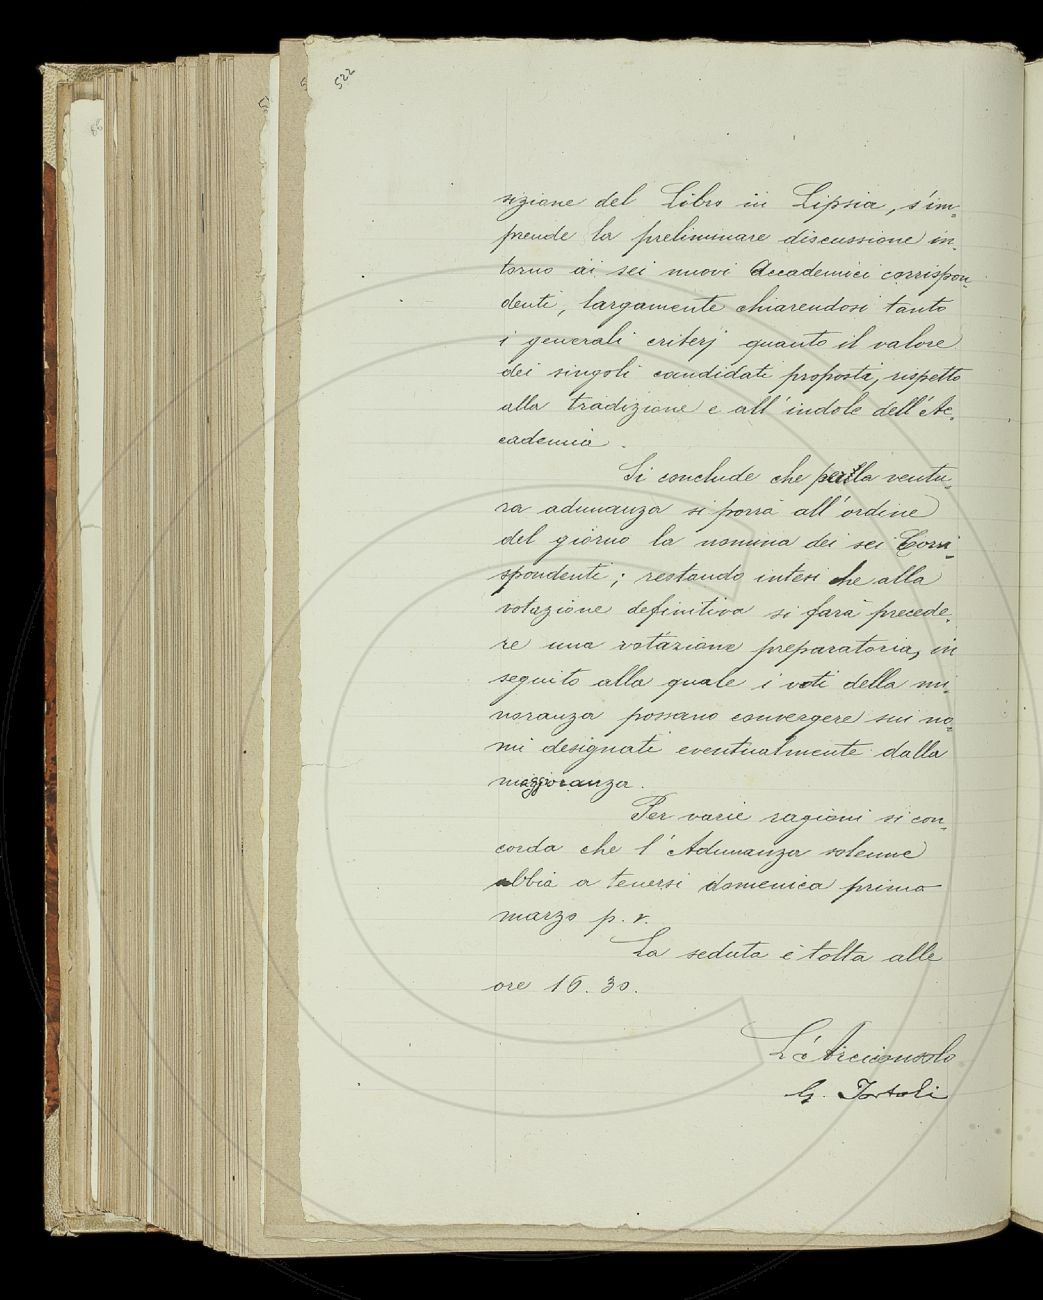 522
sizione del Libro in Lipsia, s'im-
prende la preliminare discussione in-
torno ai sei nuovi Accademici corrispon-
denti, largamente chiarendosi tanto
i generali criterj quanto il valore
dei singoli candidati proposti, rispetto
alla tradizione e all'indole dell'Ac-
cademia.
Si conclude che per la ventu-
ra adunanza si porrà all'ordine
del giorno la nomina dei sei Corri-
spondenti; restando intesi che alla
votazione definitiva si farà precede-
re una votazione preparatoria, in
seguito alla quale i voti della mi-
noranza possano convergere sui no-
mi designati eventualmente dalla
maggioranza.
Per varie ragioni si con-
corda che l'Adunanza solenne
abbia a tenersi domenica primo
marzo p. v.
La seduta è tolta alle
ore 16.30.
L'Arciconsolo
G. Tortoli